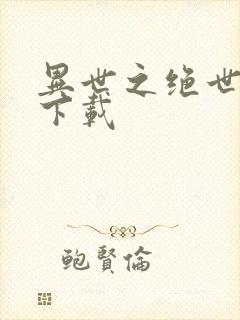 異世之绝世
下載
鲍賢倫